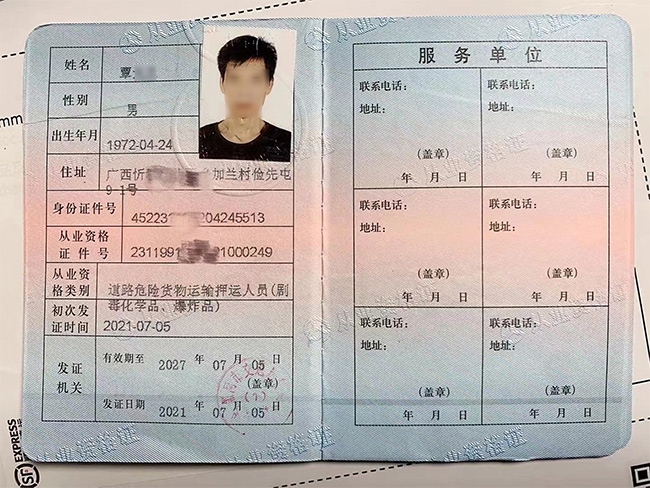 姓名 覃
性别 男
出生年月 1972-04-24
住址 广西忻 加兰村俭先屯
9-1号
身份证件号 45223 204245513
从业资格
证件号 2311991 21000249
从业资
格类别 道路危险货物运输押运人员(剧
毒化学品、爆炸品)
初次发
证时间 2021-07-05
发证
机关
有效期至 2027 年 07 月 05 日
(盖章)
发证日期 2021 年 07 月 05 日
服务单位
联系电话: 联系电话:
地址: 地址:
(盖章) (盖章)
年 月 日 年 月 日
联系电话: 联系电话:
地址: 地址:
(盖章) (盖章)
年 月 日 年 月 日
联系电话: 联系电话:
地址: 地址:
(盖章) (盖章)
年 月 日 年 月 日
从业资格证
从业资格证
从业资格证
从业资格证
mm
SF EXPRESS